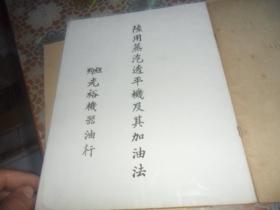 陸用蒸汽透平機及其加油法
紐約
光裕機器油行